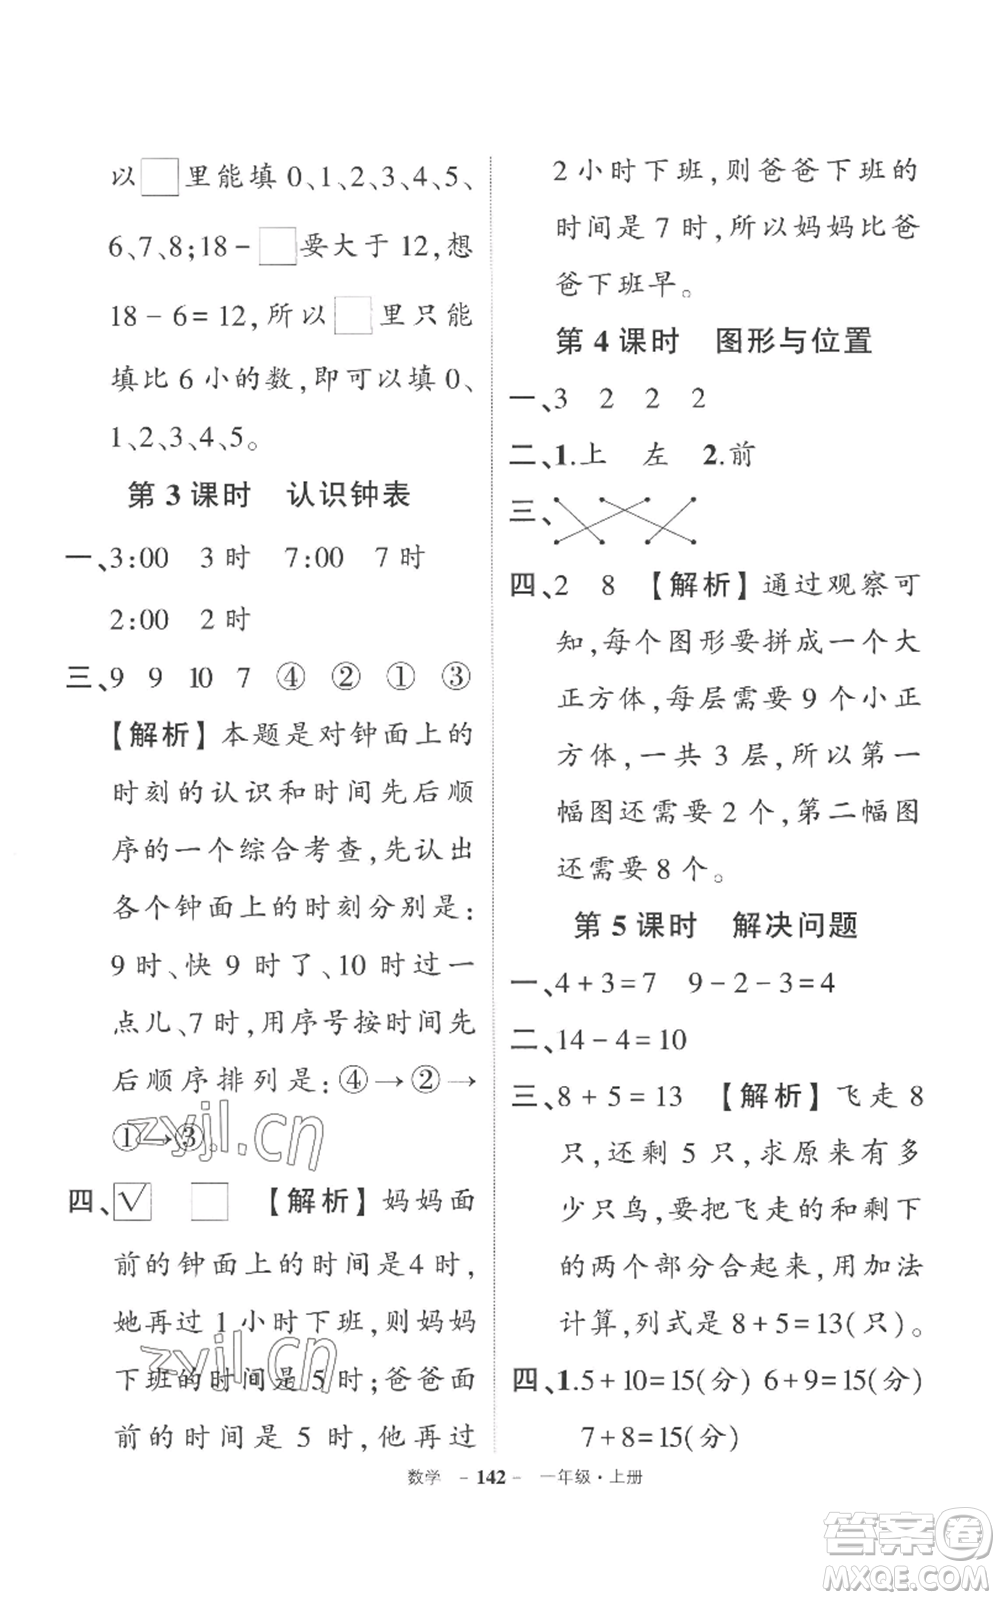 以□里能填 0、1、2、3、4、5、
6、7、8;18-□要大于 12,想
18-6=12,所以□里只能
填比 6 小的数,即可以填 0、
1、2、3、4、5。
第 3 课时 认识钟表
一、3:00 3 时 7:00 7 时
2:00 2 时
三、9 9 10 7 ④ ② ① ③
【解析】本题是对钟面上的
时刻的认识和时间先后顺
序的一个综合考查,先认出
各个钟面上的时刻分别是:
9 时、快 9 时了、10 时过一
点儿、7 时,用序号按时间先
后顺序排列是:④→②→
①→③。
四、☑ □ 【解析】妈妈面
前的钟面上的时间是4 时,
她再过 1 小时下班,则妈妈
下班的时间是 5 时;爸爸面
前的时间是 5 时,他再过
2 小时下班,则爸爸下班的
时间是 7 时,所以妈妈比爸
爸下班早。
第 4 课时 图形与位置
一、3 2 2 2
二、1.上 左 2.前
三、
四、2 8 【解析】通过观察可
知,每个图形要拼成一个大
正方体,每层需要 9 个小正
方体,一共 3 层,所以第一
幅图还需要 2 个,第二幅图
还需要 8 个。
第 5 课时 解决问题
一、4+3=7 9-2-3=4
二、14-4=10
三、8+5=13 【解析】飞走 8
只,还剩 5 只,求原来有多
少只鸟,要把飞走的和剩下
的两个部分合起来,用加法
计算,列式是 8+5=13(只)。
四、1.5+10=15(分) 6+9=15(分)
7+8=15(分)
数学 -142- 一年级·上册
zyjl.cn
zyjl.cn
答案卷
MXQE.COM